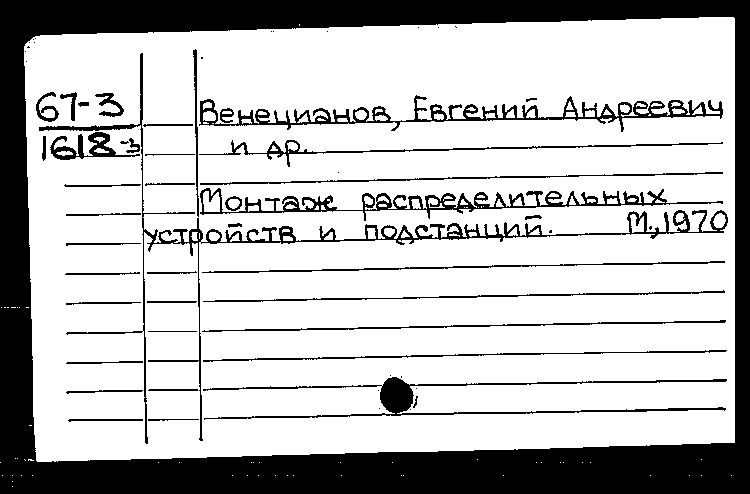 67-3
1618-3
Венецианов, Евгений Андреевич
и др.
Монтаж распределительных
устройств и подстанций. М., 1970